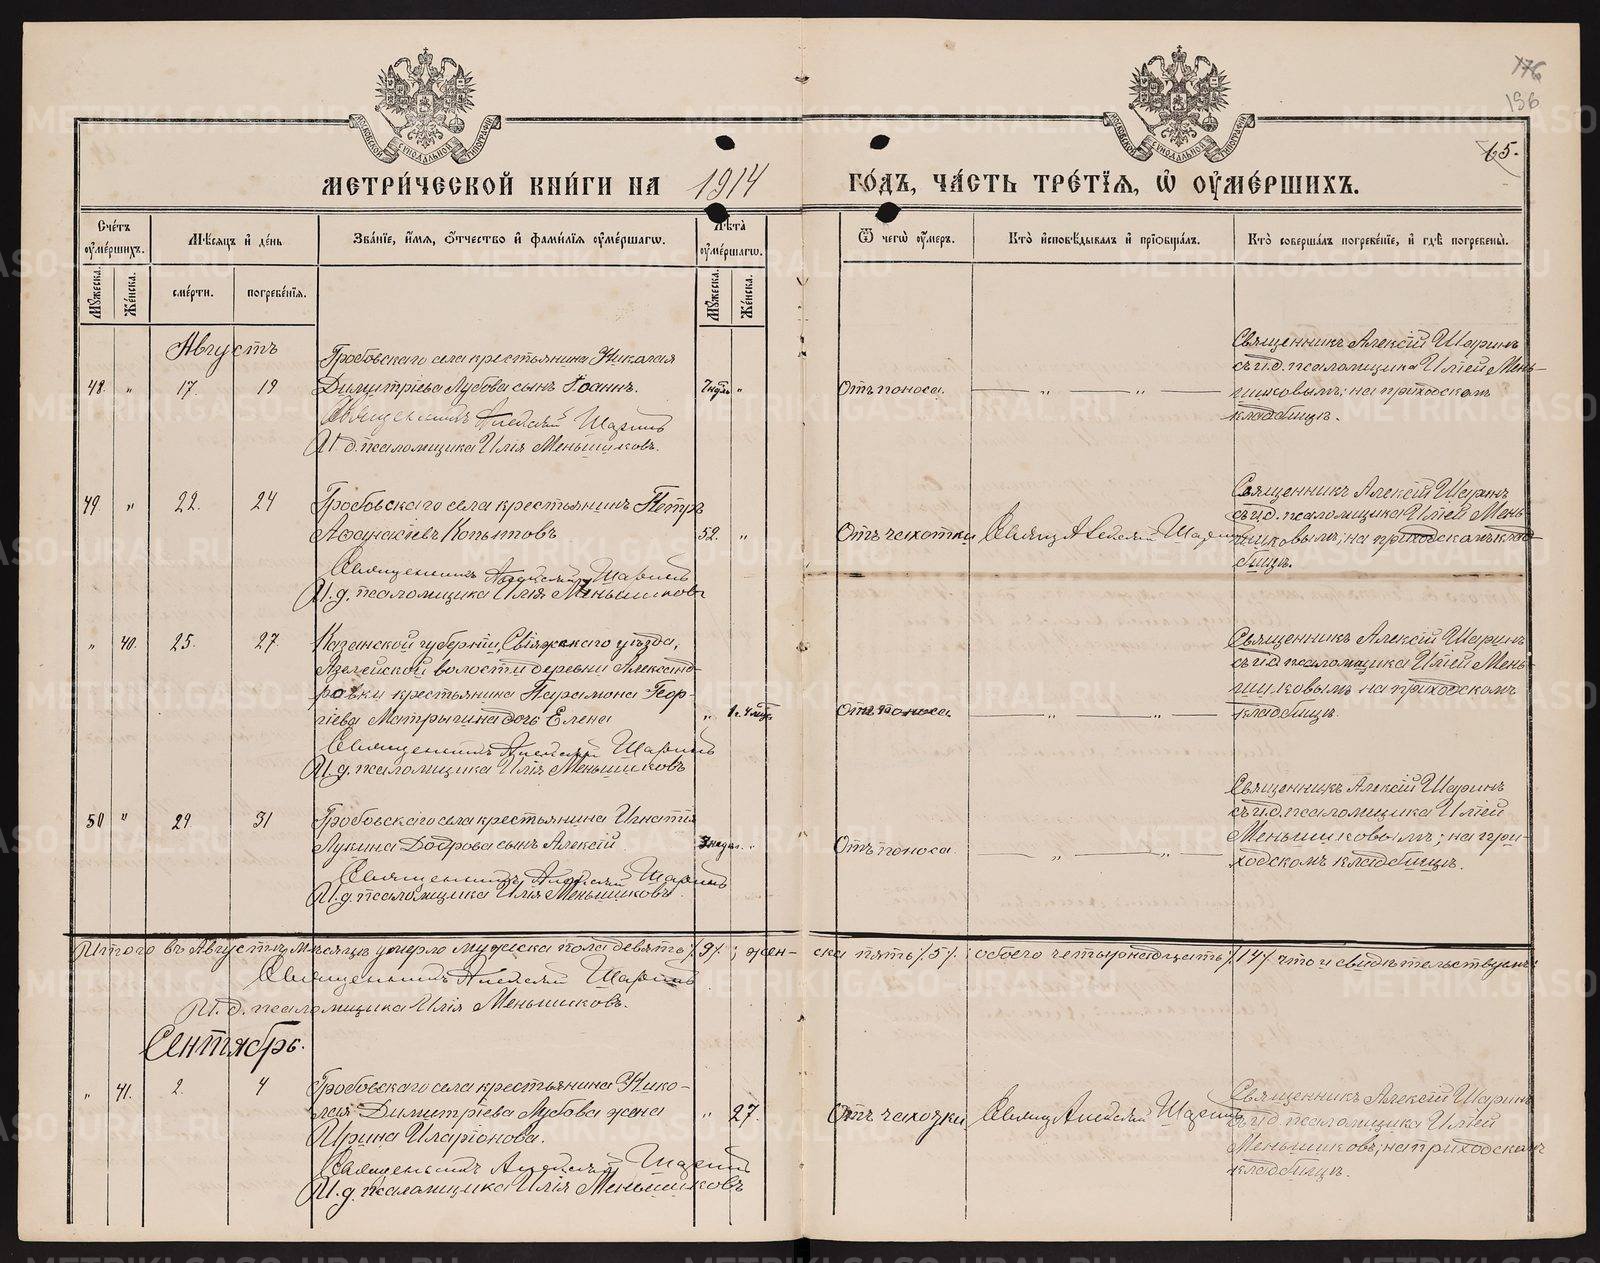 176
156
65.
МЕТРИ́ЧЕСКОЙ КНИ́ГИ НА 1914 ГО́ДЪ, ЧА́СТЬ ТРЕ́ТІѦ, Ѽ ОУ҆МЕ́РШИХЪ.
Сче́тъ оу҆ме́ршихъ.
Мꙋжеска. Же́нска.
Мѣ́сѧцъ и҆ де́нь
сме́рти. погребе́нїѧ.
Зва́нїе, и҆́мѧ, ѻ҆́тчество и҆ фамилїѧ оу҆ме́ршагѡ.
Лѣ́та оу҆ме́ршагѡ.
Мꙋжеска. Же́нска.
Ѿ чегѡ̀ оу҆́меръ.
Кто̀ и҆сповѣ́дывалъ и҆ прїѡбща́лъ.
Кто̀ соверша́лъ погребе́нїе, и҆ гдѣ̀ погребены̀.
Августъ
48. " 17. 19
Гробовскаго села крестьянина Николая
Димитріева Лубова сынъ Іоаннъ.
Священникъ Алексій Шаринъ
И. д. псаломщика Илія Меньшиковъ.
"
Отъ поноса.
Священникъ Алексій Шаринъ
съ и.д. псаломщика Иліей Мень-
шиковымъ; на приходскомъ
кладбищѣ.
49. " 22. 24
Гробовскаго села крестьянинъ Петръ
Аѳанасіевъ Копытовъ
52. "
Священникъ Алексій Шаринъ
И. д. псаломщика Илія Меньшиковъ
Отъ чахотки
Священ Алексій Шаринъ
Священникъ Алексій Шаринъ
съ и.д. псаломщика Иліей Мень-
шиковымъ; на приходскомъ клад-
бищѣ.
" 40. 25. 27
Казанской губерніи, Свіяжскаго уѣзда,
Азелейской волости деревни Александ-
ровки крестьянина Парамона Геор-
гіева Матрыгина дочь Елена
" 1 г. 4 мѣс.
Священникъ Алексій Шаринъ
И. д. псаломщика Илія Меньшиковъ
Отъ поноса
Священникъ Алексій Шаринъ
съ и.д. псаломщика Иліей Мень-
шиковымъ на приходскомъ
кладбищѣ.
50 " 29 31
Гробовскаго села крестьянина Игнатія
Лукина Доброва сынъ Алексій.
3 недѣл. "
Священникъ Алексій Шаринъ
И. д. псаломщика Илія Меньшиковъ
Отъ поноса.
Священникъ Алексій Шаринъ
съ и.д. псаломщика Иліей
Меньшиковымъ; на при-
ходскомъ кладбищѣ.
Итого въ Августѣ мѣсяцѣ умерло мужеска пола девять /9/; жен-ска пять /5/; обоего четырнадцать /14/ что и свидѣтельствуемъ
Священникъ Алексій Шаринъ
И. д. псаломщика Илія Меньшиковъ.
Сентябрь.
" 41. 2. 4
Гробовскаго села крестьянина Нико-
лая Димитріева Лубова жена
Ирина Иларіонова.
" 27.
Священникъ Алексій Шаринъ
И. д. псаломщика Илія Меньшиковъ
Отъ чахотки
Священ Алексій Шаринъ
Священникъ Алексій Шаринъ
съ и.д. псаломщика Иліей
Меньшиковъ; на приходскомъ
кладбищѣ.
METRIKI.GASO-URAL.RU